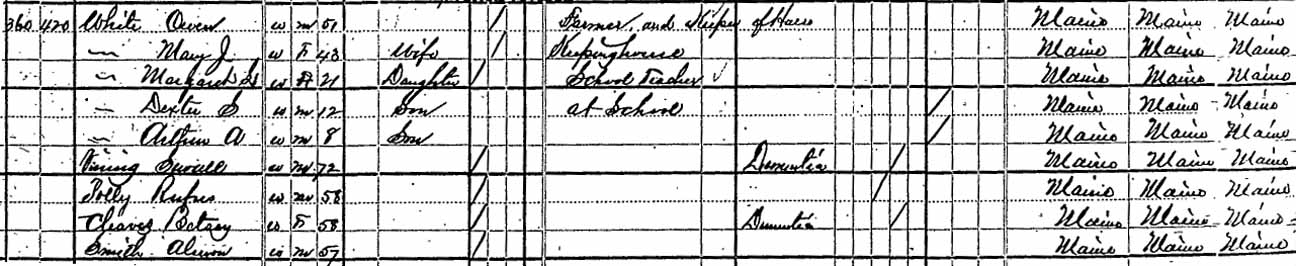 360 420 White Owen W M 51 / Farmer, and Keeper of Maine Maine Maine
— Mary J W F 43 Wife / Keeping house Maine Maine Maine
— W F 21 Daughter / School Teacher ✓ Maine Maine Maine
— Dexter S W M 12 Son at School / Maine Maine Maine
— W M 8 Son / Maine Maine Maine
Vining W M 72 / Dementia / Maine Maine Maine
Polly Rufus W M 58 / / Maine Maine Maine
Betsey W F 58 / Dementia / Maine Maine Maine
Smith W M 57 / Maine Maine Maine